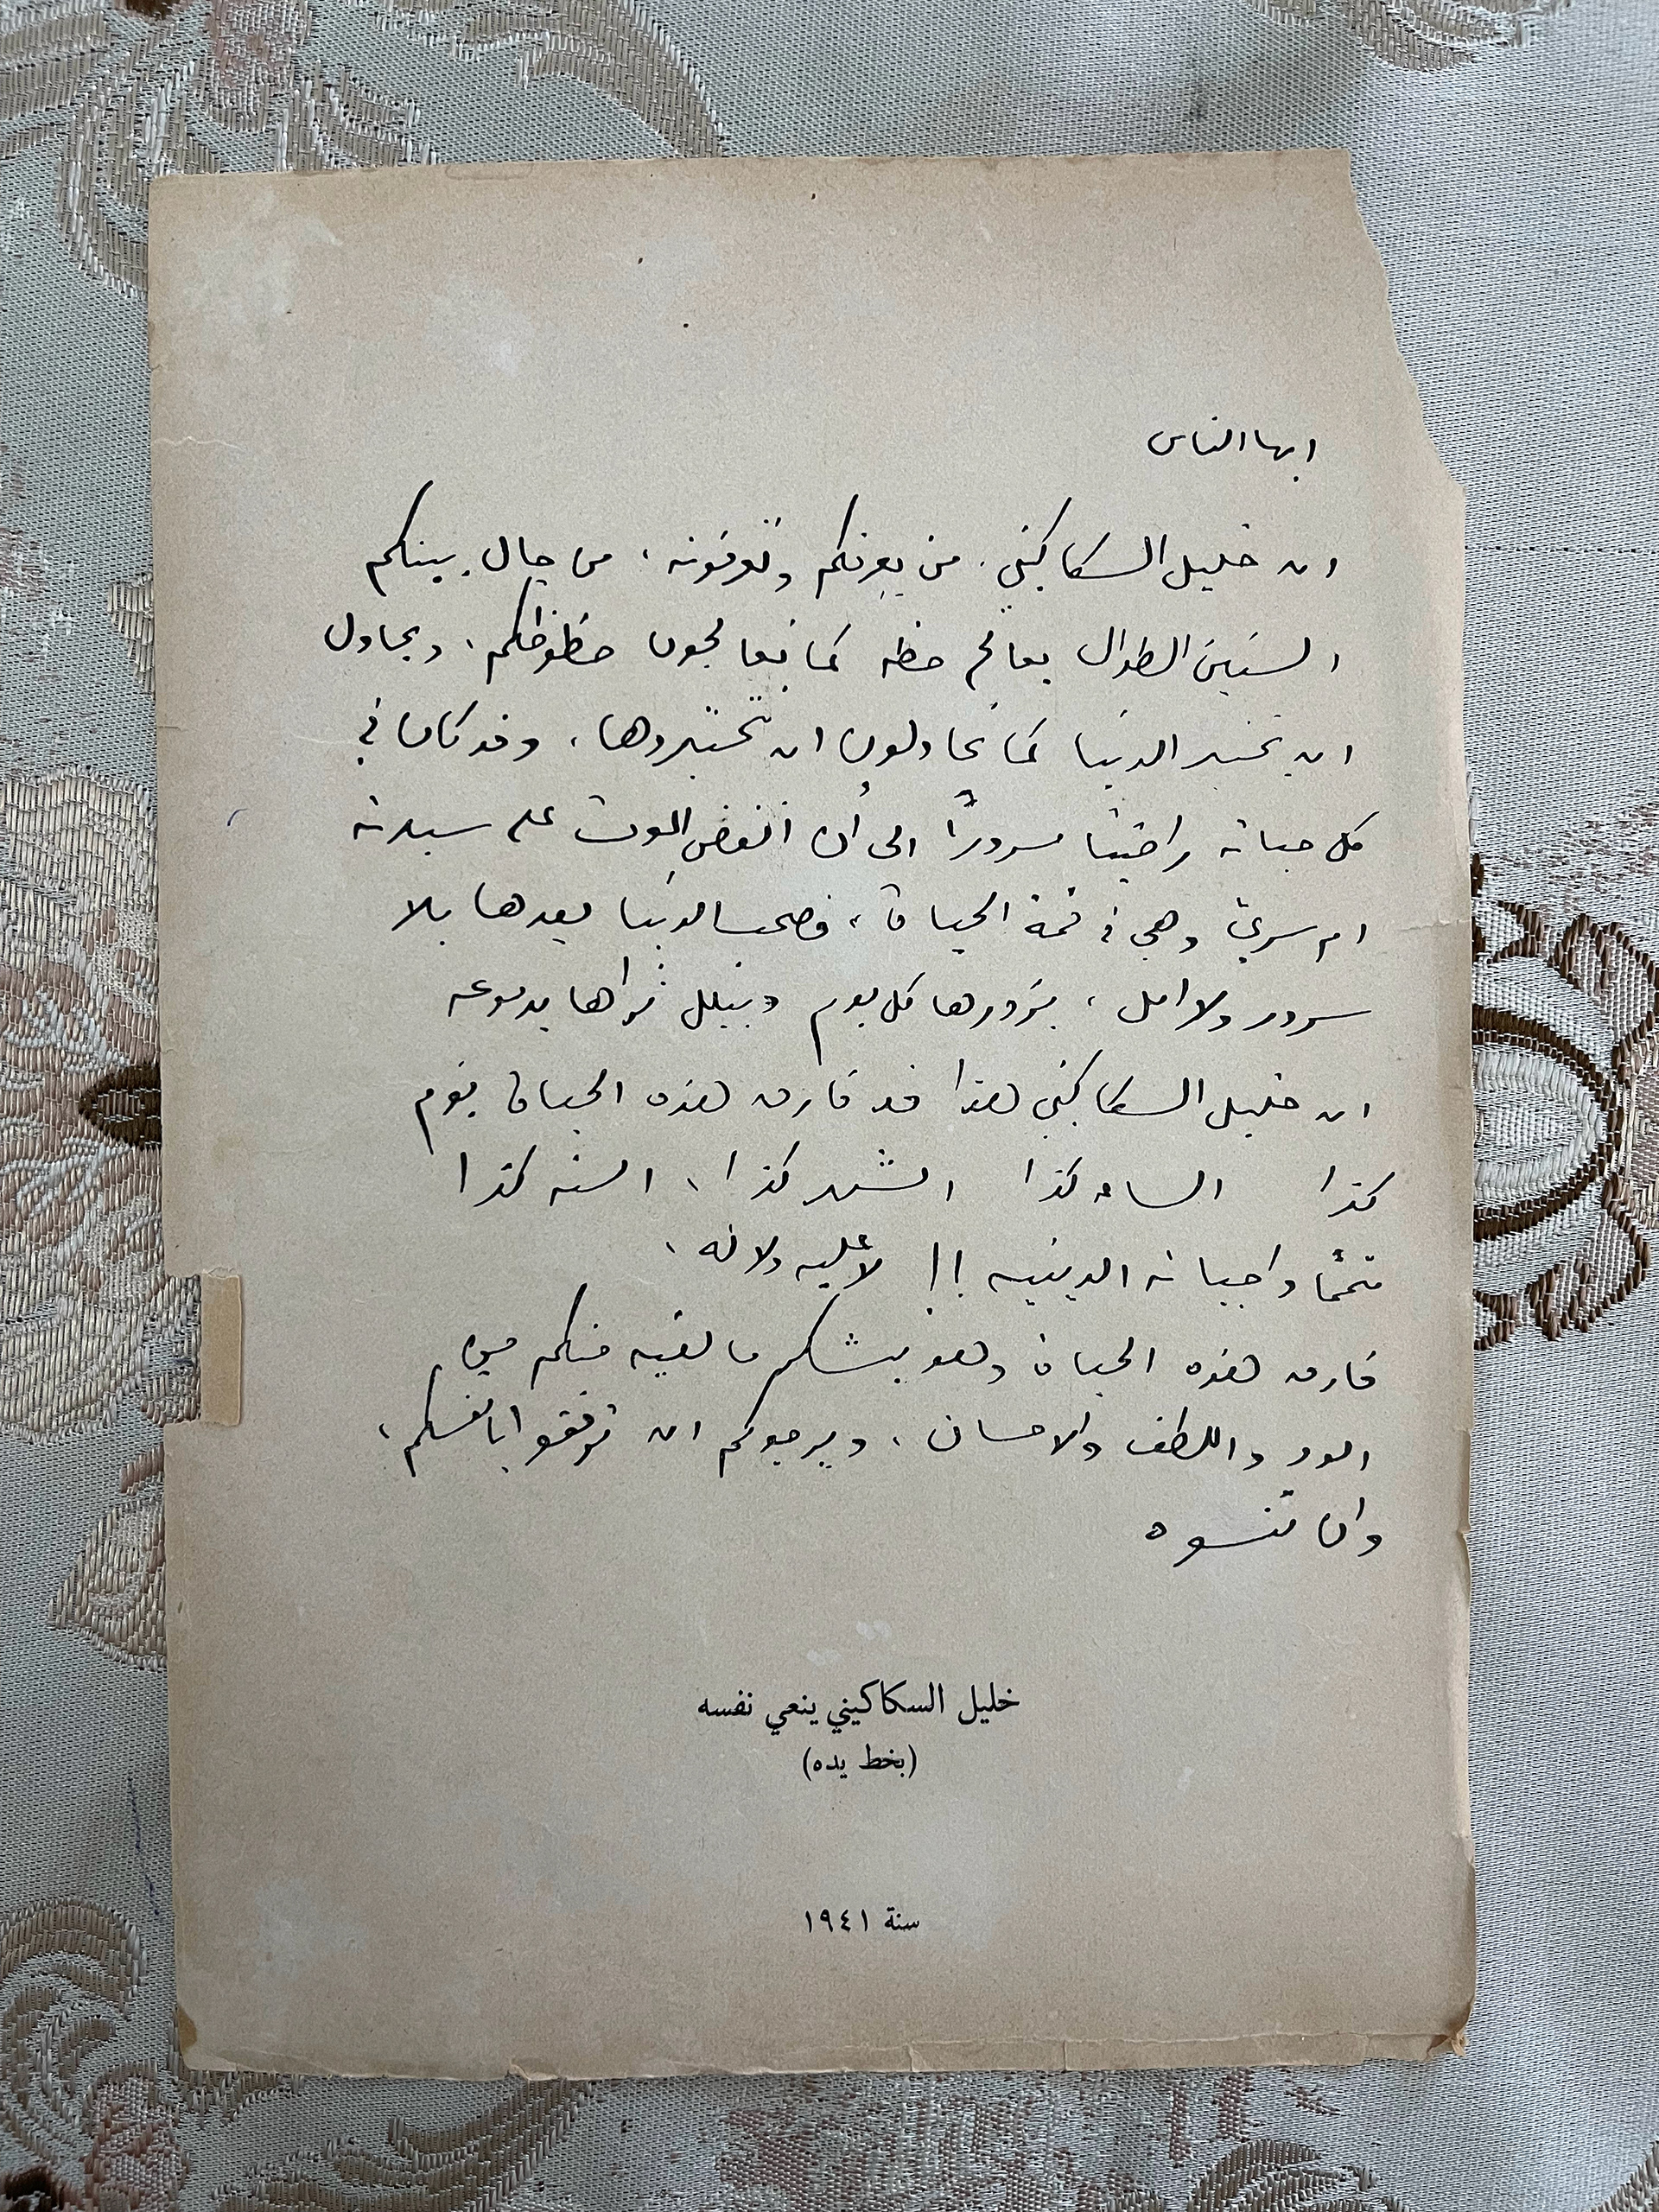 ايها الناس
ان خليل السكاكيني، من يعرفكم وتعرفونه، من جال بينكم
السنين الطوال يعالج حظه كما تعالجون حظوظكم، ويحاول
ان يختبر الدنيا كما تحاولون ان تختبروها، وقد كان في
كل حياته راضيًا مسرورًا الى أن انقض الموت على سيدته
ام سري وهي في قمة الحياة، فصحب الدنيا بعدها بلا
سرور ولا امل، يزورها كل يوم ويبلل ثراها بدموعه
ان خليل السكاكيني هذا قد فارق هذه الحياة يوم
كذا الساعه كذا الشهر كذا، السنه كذا
متممًا واجباته الدينيه !! لا عليه ولا له،
فارق هذه الحياة وهو يشكر ما لقيه منكم من
الود واللطف والاحسان، ويرجوكم ان ترفقوا بانفسكم،
وان تنسوه
خليل السكاكيني ينعي نفسه
(بخط يده)
سنة ١٩٤١